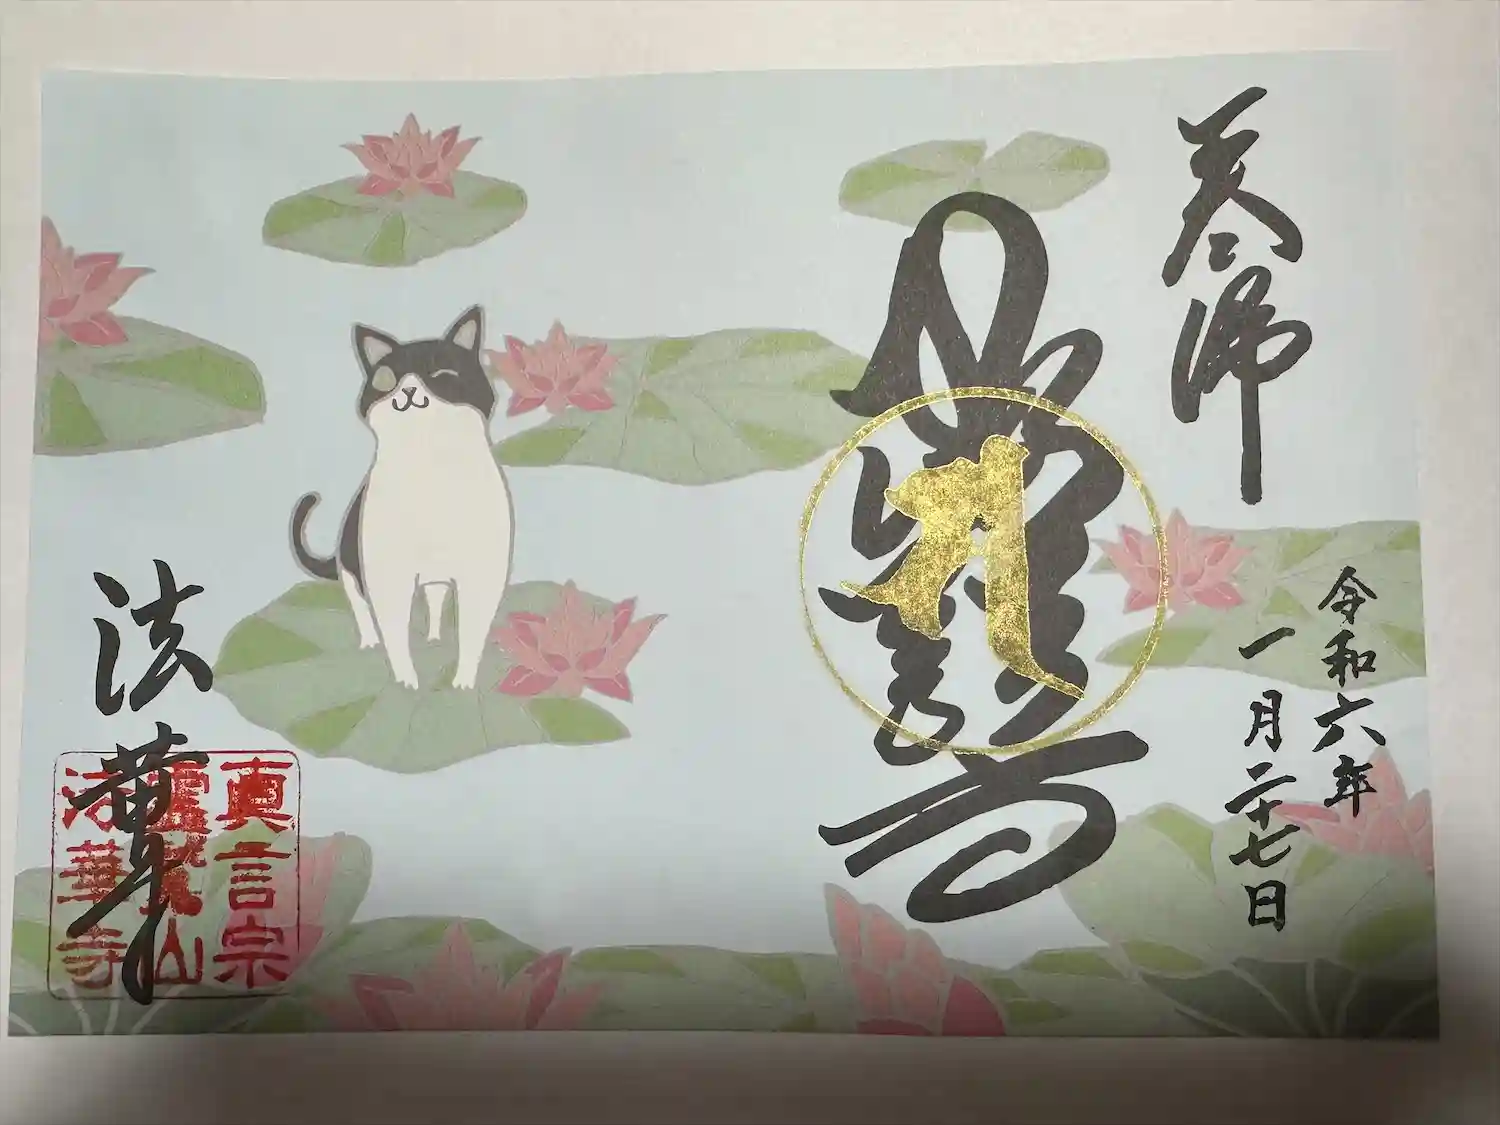 奉拝
令和六年
一月二十七日
法華寺
真言宗
靈鷲山
法華寺